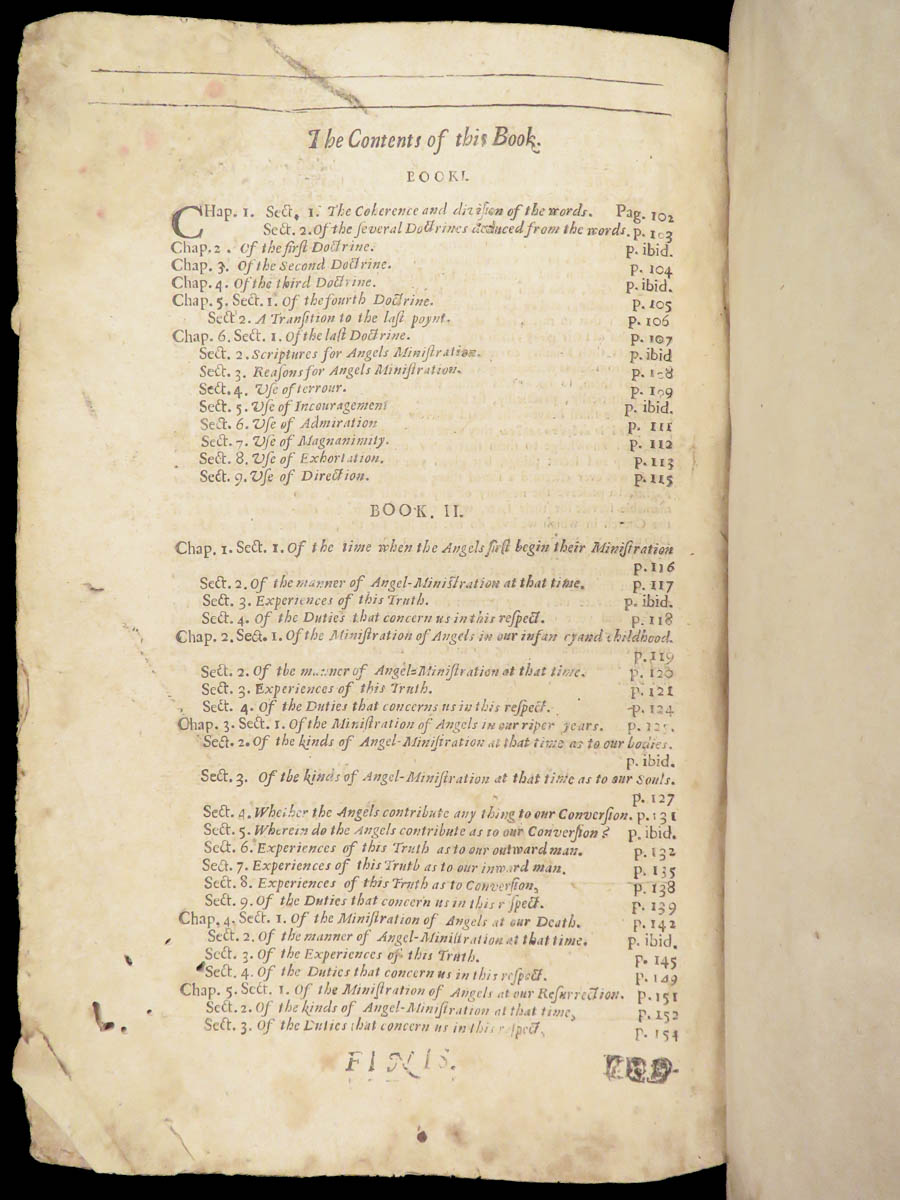 The Contents of this Book.
BOOK I.
CHap. 1. Sect. 1. The Coherence and division of the words. Pag. 102
Sect. 2. Of the ſeveral Doctrines deduced from the words. p. 103
Chap. 2. Of the firſt Doctrine. p. ibid.
Chap. 3. Of the Second Doctrine. p. 104
Chap. 4. Of the third Doctrine. p. ibid.
Chap. 5. Sect. 1. Of the fourth Doctrine. p. 105
Sect 2. A Tranſition to the laſt poynt. p. 106
Chap. 6. Sect. 1. Of the laſt Doctrine. p. 107
Sect. 2. Scriptures for Angels Miniſtration. p. ibid
Sect. 3. Reaſons for Angels Miniſtration. p. 108
Sect. 4. Uſe of terrour. p. 109
Sect. 5. Uſe of Incouragement p. ibid.
Sect. 6. Uſe of Admiration p. 111
Sect. 7. Uſe of Magnanimity. p. 112
Sect. 8. Uſe of Exhortation. p. 113
Sect. 9. Uſe of Direction. p. 115
BOOK. II.
Chap. 1. Sect. 1. Of the time when the Angels firſt begin their Miniſtration
p. 116
Sect. 2. Of the manner of Angel-Miniſtration at that time. p. 117
Sect. 3. Experiences of this Truth. p. ibid.
Sect. 4. Of the Duties that concern us in this reſpect. p. 118
Chap. 2. Sect. 1. Of the Miniſtration of Angels in our infan cy and childhood.
p. 119
Sect. 2. Of the manner of Angel-Miniſtration at that time. p. 120
Sect. 3. Experiences of this Truth. p. 121
Sect. 4. Of the Duties that concerns us in this reſpect. p. 124
Chap. 3. Sect. 1. Of the Miniſtration of Angels in our riper years. p. 125.
Sect. 2. Of the kinds of Angel-Miniſtration at that time as to our bodies.
p. ibid.
Sect. 3. Of the kinds of Angel-Miniſtration at that time as to our Souls.
p. 127
Sect. 4. Whether the Angels contribute any thing to our Converſion. p. 131
Sect. 5. Wherein do the Angels contribute as to our Converſion? p. ibid.
Sect. 6. Experiences of this Truth as to our outward man. p. 132
Sect. 7. Experiences of this Truth as to our inward man. p. 135
Sect. 8. Experiences of this Truth as to Converſion, p. 138
Sect. 9. Of the Duties that concern us in this reſpect. p. 139
Chap. 4. Sect. 1. Of the Miniſtration of Angels at our Death. p. 142
Sect. 2. Of the manner of Angel-Miniſtration at that time. p. ibid.
Sect. 3. Of the Experiences of this Truth. p. 145
Sect. 4. Of the Duties that concern us in this reſpect. p. 149
Chap. 5. Sect. 1. Of the Miniſtration of Angels at our Reſurrection. p. 151
Sect. 2. Of the kinds of Angel-Miniſtration at that time, p. 152
Sect. 3. Of the Duties that concern us in this reſpect, p. 154
FINIS.